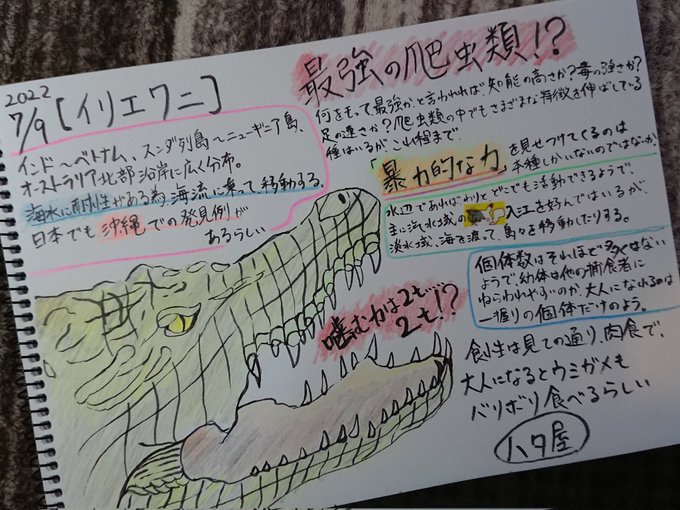 2022
7/9【イリエワニ】
インド〜ベトナム、スンダ列島〜ニューギニア島、
オーストラリア北部沿岸に広く分布。
海水に耐性がある為、海流に乗って移動する、
日本でも沖縄での発見例が
あるらしい
最強の爬虫類!?
何をもって最強かと言われれば知能の高さか?毒の強さか?
足の速さか?爬虫類の中でもさまざまな特徴を伸ばしている
種はいるが、これ程まで
「暴力的な力」を見せつけてくるのは
本種しかいないのではないか
水辺であればわりとどこでも活動できるようで、
主に汽水域の入江を好んではいるが、
淡水域、海を渡って、島々を移動したりする。
個体数はそれほど多くはない
ようで、幼体は他の捕食者に
ねらわれやすいのか、大人になれるのは
一握りの個体だけのよう。
噛む力は2t…
2t!?
食性は見ての通り、肉食で、
大人になるとウミガメも
バリボリ食べるらしい
ハタ屋